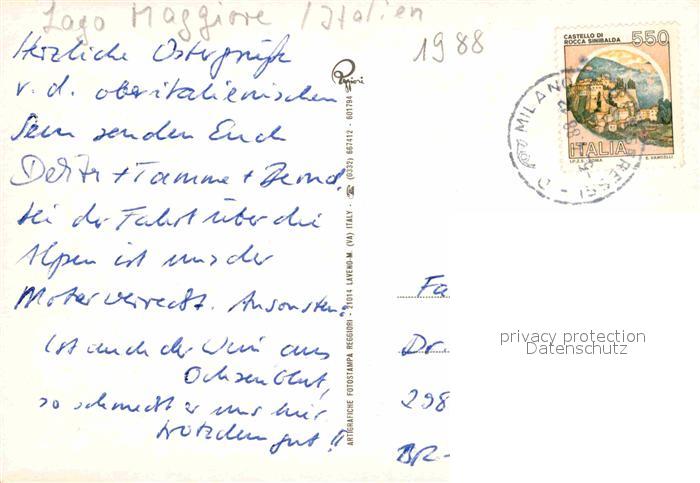 Lago Maggiore / Italien
1988
Herzliche Ostergrüße
v. d. oberitalienischen
Seen senden Euch
+ Tamme + Bernd.
Bei der Fahrt über die
Alpen ist uns der
Motor verreckt. Ansonsten:
Ist auch der Wein aus
Ochsenblut,
so schmeckt er uns hier
trotzdem gut!!
Reggiori
ARTIGRAFICHE FOTOSTAMPA REGGIORI - 21014 LAVENO-M. (VA) ITALY - ☎ (0332) 667412 - 601794
CASTELLO DI
ROCCA SINIBALDA
550
ITALIA
I.P.Z.S. ROMA
E. VANGELLI
MILANO
88
Fa
Dr.
298
BR-
privacy protection
Datenschutz